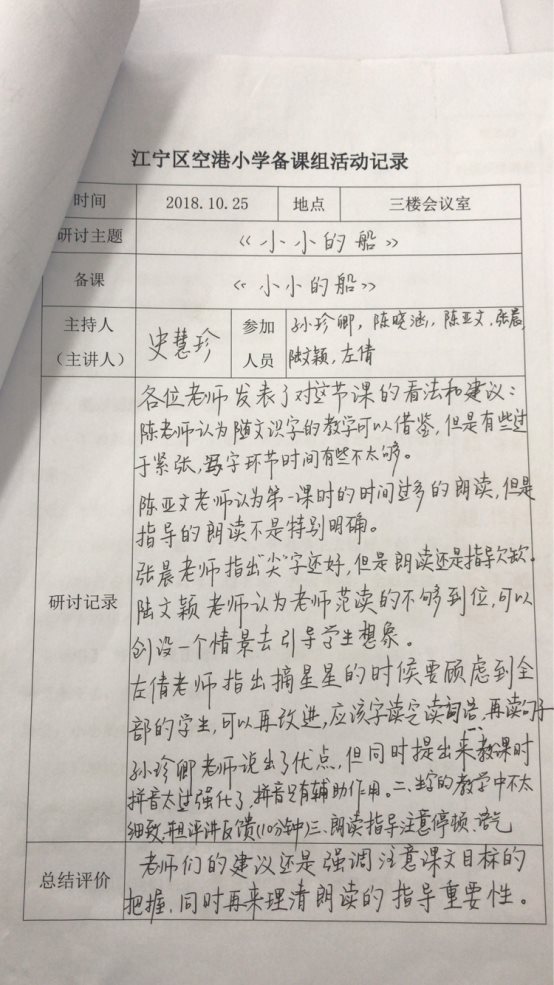 江宁区空港小学备课组活动记录
时间 2018.10.25 地点 三楼会议室
研讨主题 《小小的船》
备课 《小小的船》
主持人（主讲人） 史慧珍 参加人员 孙珍卿，陈晓涵，陈亚文，张晨，
陆文颖，左倩
研讨记录
各位老师发表了对这节课的看法和建议：
陈老师认为随文识字的教学可以借鉴，但是有些过
于紧张，写字环节时间有些不太够。
陈亚文老师认为第一课时的时间过多的朗读，但是
指导的朗读不是特别明确。
张晨老师指出“尖”字还好，但是朗读还是指导欠缺。
陆文颖老师认为老师范读的不够到位，可以
创设一个情景去引导学生想象。
左倩老师指出摘星星的时候要顾虑到全
部的学生，可以再改进，应该字读完读词语，再读句子
孙珍卿老师说出了优点，但同时提出来一、教课时
拼音太过强化了，拼音只有辅助作用。二、生字的教学中不太
细致，评讲反馈（10分钟）三、朗读指导注意停顿、语气
总结评价
老师们的建议还是强调注意课文目标的
把握，同时再来理清朗读的指导重要性。